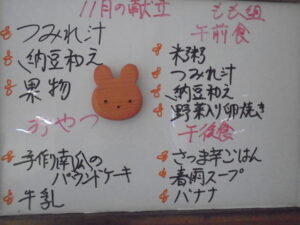 11月の献立
つみれ汁
納豆和え
果物
おやつ
手作り南瓜の
パウンドケーキ
牛乳
もも組
午前食
米粥
つみれ汁
納豆和え
野菜入り卵焼き
午後食
さつま芋ごはん
春雨スープ
バナナ